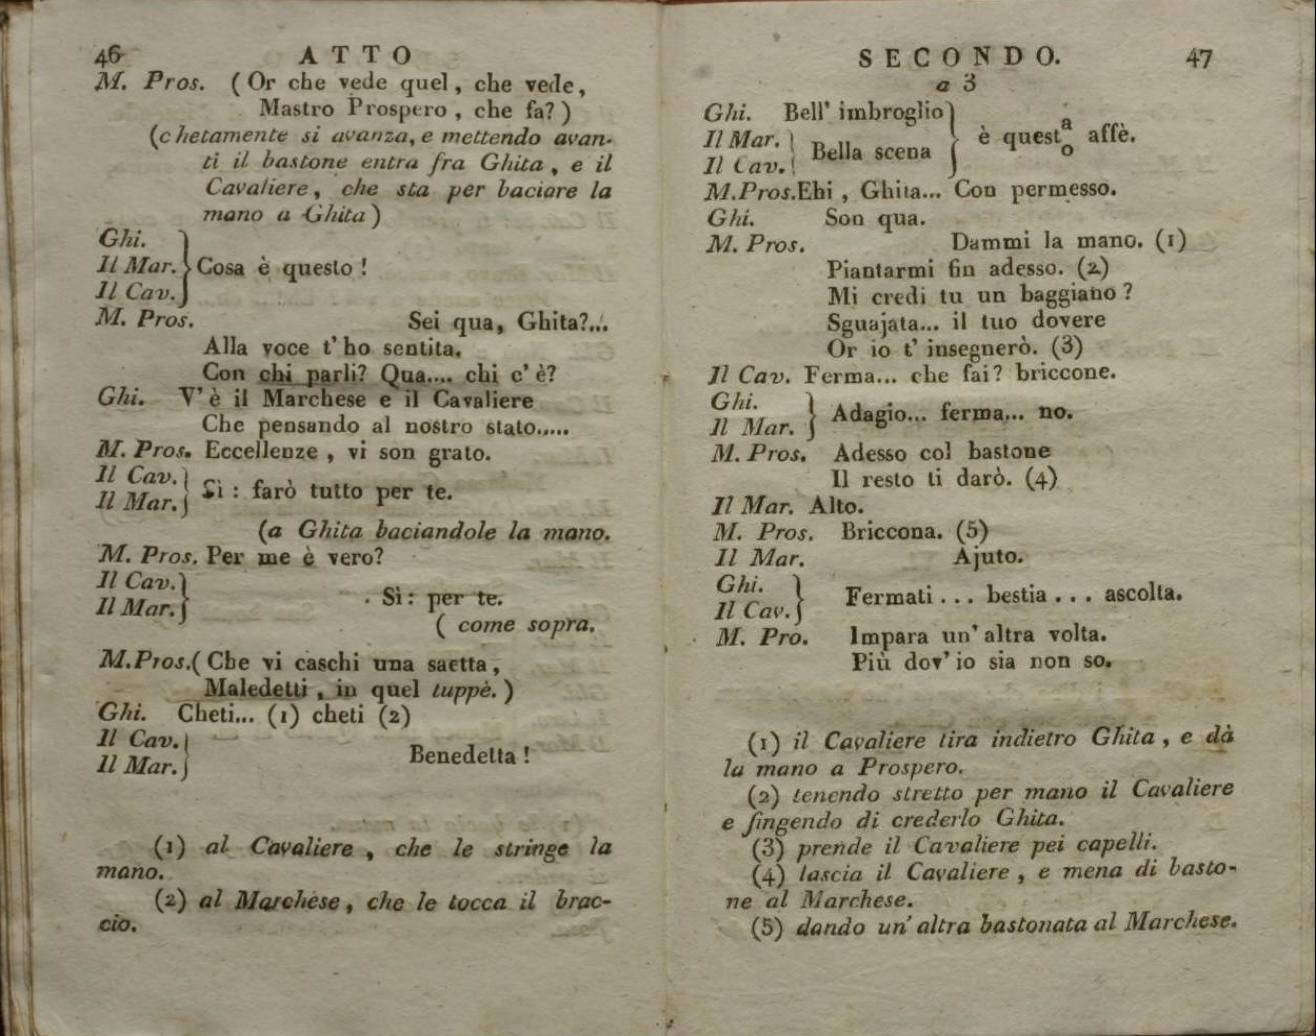 46 ATTO
M. Pros. (Or che vede quel, che vede,
Mastro Prospero, che fa?)
(chetamente si avanza, e mettendo avan-
ti il bastone entra fra Ghita, e il
Cavaliere, che sta per baciare la
mano a Ghita)
Ghi.
Il Mar. } Cosa è questo!
Il Cav.
M. Pros. Sei qua, Ghita?...
Alla voce t' ho sentita.
Con chi parli? Qua.... chi c' è?
Ghi. V' è il Marchese e il Cavaliere
Che pensando al nostro stato.....
M. Pros. Eccellenze, vi son grato.
Il Cav. }
Il Mar. } Sì: farò tutto per te.
(a Ghita baciandole la mano.
M. Pros. Per me è vero?
Il Cav. }
Il Mar. } Sì: per te.
( come sopra.
M. Pros. (Che vi caschi una saetta,
Maledetti, in quel tuppè.)
Ghi. Cheti... (1) cheti (2)
Il Cav. }
Il Mar. } Benedetta!
(1) al Cavaliere, che le stringe la
mano.
(2) al Marchese, che le tocca il brac-
cio.
SECONDO. 47
a 3
Ghi. Bell' imbroglio }
Il Mar. } Bella scena } è quest a/o affè.
Il Cav. }
M. Pros. Ehi, Ghita... Con permesso.
Ghi. Son qua.
M. Pros. Dammi la mano. (1)
Piantarmi fin adesso. (2)
Mi credi tu un baggiano?
Sguajata... il tuo dovere
Or io t' insegnerò. (3)
Il Cav. Ferma... che fai? briccone.
Ghi. }
Il Mar. } Adagio... ferma... no.
M. Pros. Adesso col bastone
Il resto ti darò. (4)
Il Mar. Alto.
M. Pros. Briccona. (5)
Il Mar. Ajuto.
Ghi. }
Il Cav. } Fermati... bestia... ascolta.
M. Pro. Impara un' altra volta.
Più dov' io sia non so.
(1) il Cavaliere tira indietro Ghita, e dà
la mano a Prospero.
(2) tenendo stretto per mano il Cavaliere
e fingendo di crederlo Ghita.
(3) prende il Cavaliere pei capelli.
(4) lascia il Cavaliere, e mena di basto-
ne al Marchese.
(5) dando un' altra bastonata al Marchese.